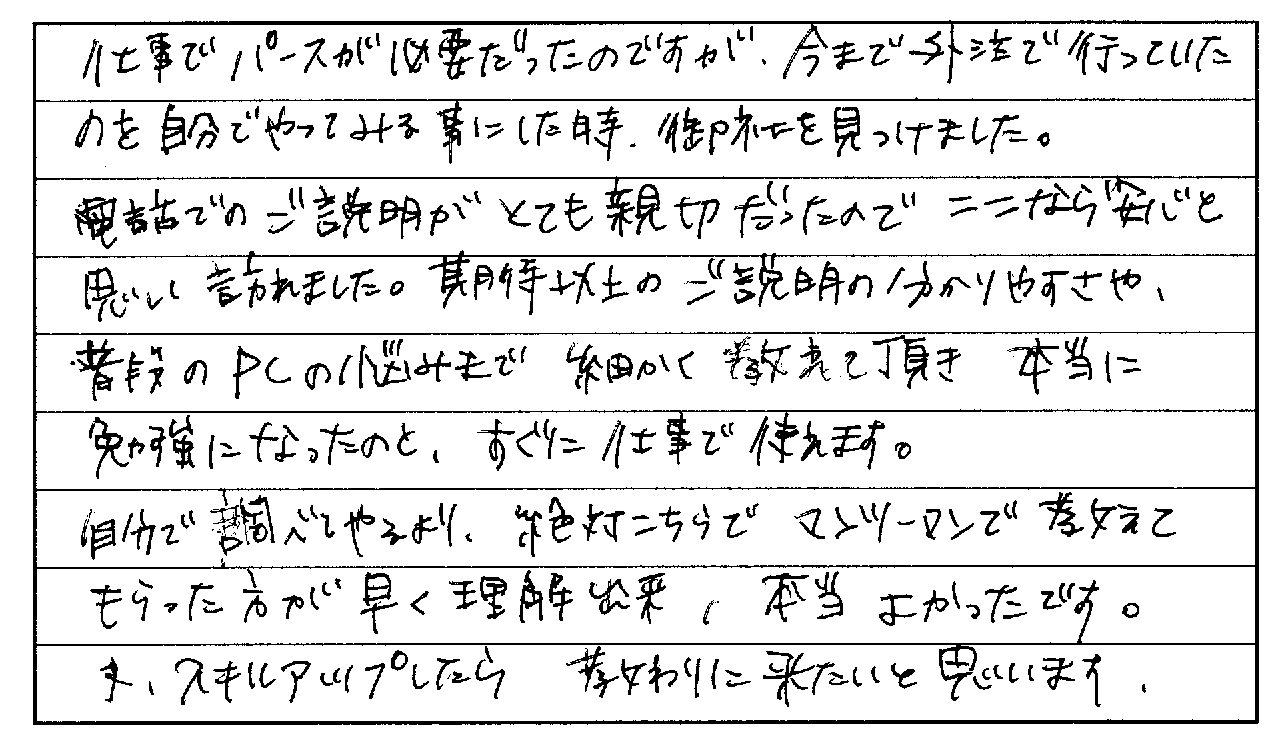 仕事でパースが必要だったのですが、今まで外注で行っていた
のを自分でやってみる事にした時、御社を見つけました。
電話でのご説明がとても親切だったのでここなら安心と
思い訪れました。期待以上のご説明の分かりやすさや、
普段のPCの悩みまで細かく教えて頂き本当に
勉強になったのと、すぐに仕事で使えます。
自分で調べてやるより、絶対こちらでマンツーマンで教えて
もらった方が早く理解出来、本当よかったです。
また、スキルアップしたら教わりに来たいと思います、